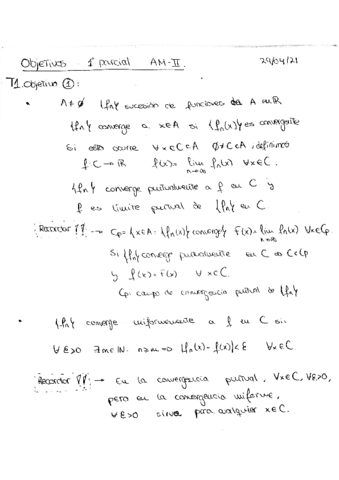 Objetivos 1º parcial AM-II. 29/04/21
T1. Objetivo ①:
• A≠∅ {fn} sucesión de funciones de A en ℝ
{fn} converge a x∈A si {fn(x)} es convergente
Si esto ocurre ∀x∈C⊂A ∅≠C⊂A, definimos
f: C→ℝ f(x)= lim n→∞ fn(x) ∀x∈C.
{fn} converge puntualmente a f en C y
f es límite puntual de {fn} en C
Recordar !! → Cp= {x∈A: {fn(x)} converge} F(x)= lim n→∞ fn(x) ∀x∈Cp.
Si {fn} converge puntualmente en C ⇒ C⊂Cp
y f(x)=F(x) ∀x∈C.
Cp= campo de convergencia puntual de {fn}
• {fn} converge uniformemente a f en C si:
∀ε>0 ∃m∈ℕ. n≥m ⇒ |fn(x)-f(x)|<ε ∀x∈C.
Recordar !! → En la convergencia puntual, ∀x∈C, ∀ε>0,
pero en la convergencia uniforme,
∀ε>0 sirve para cualquier x∈C.